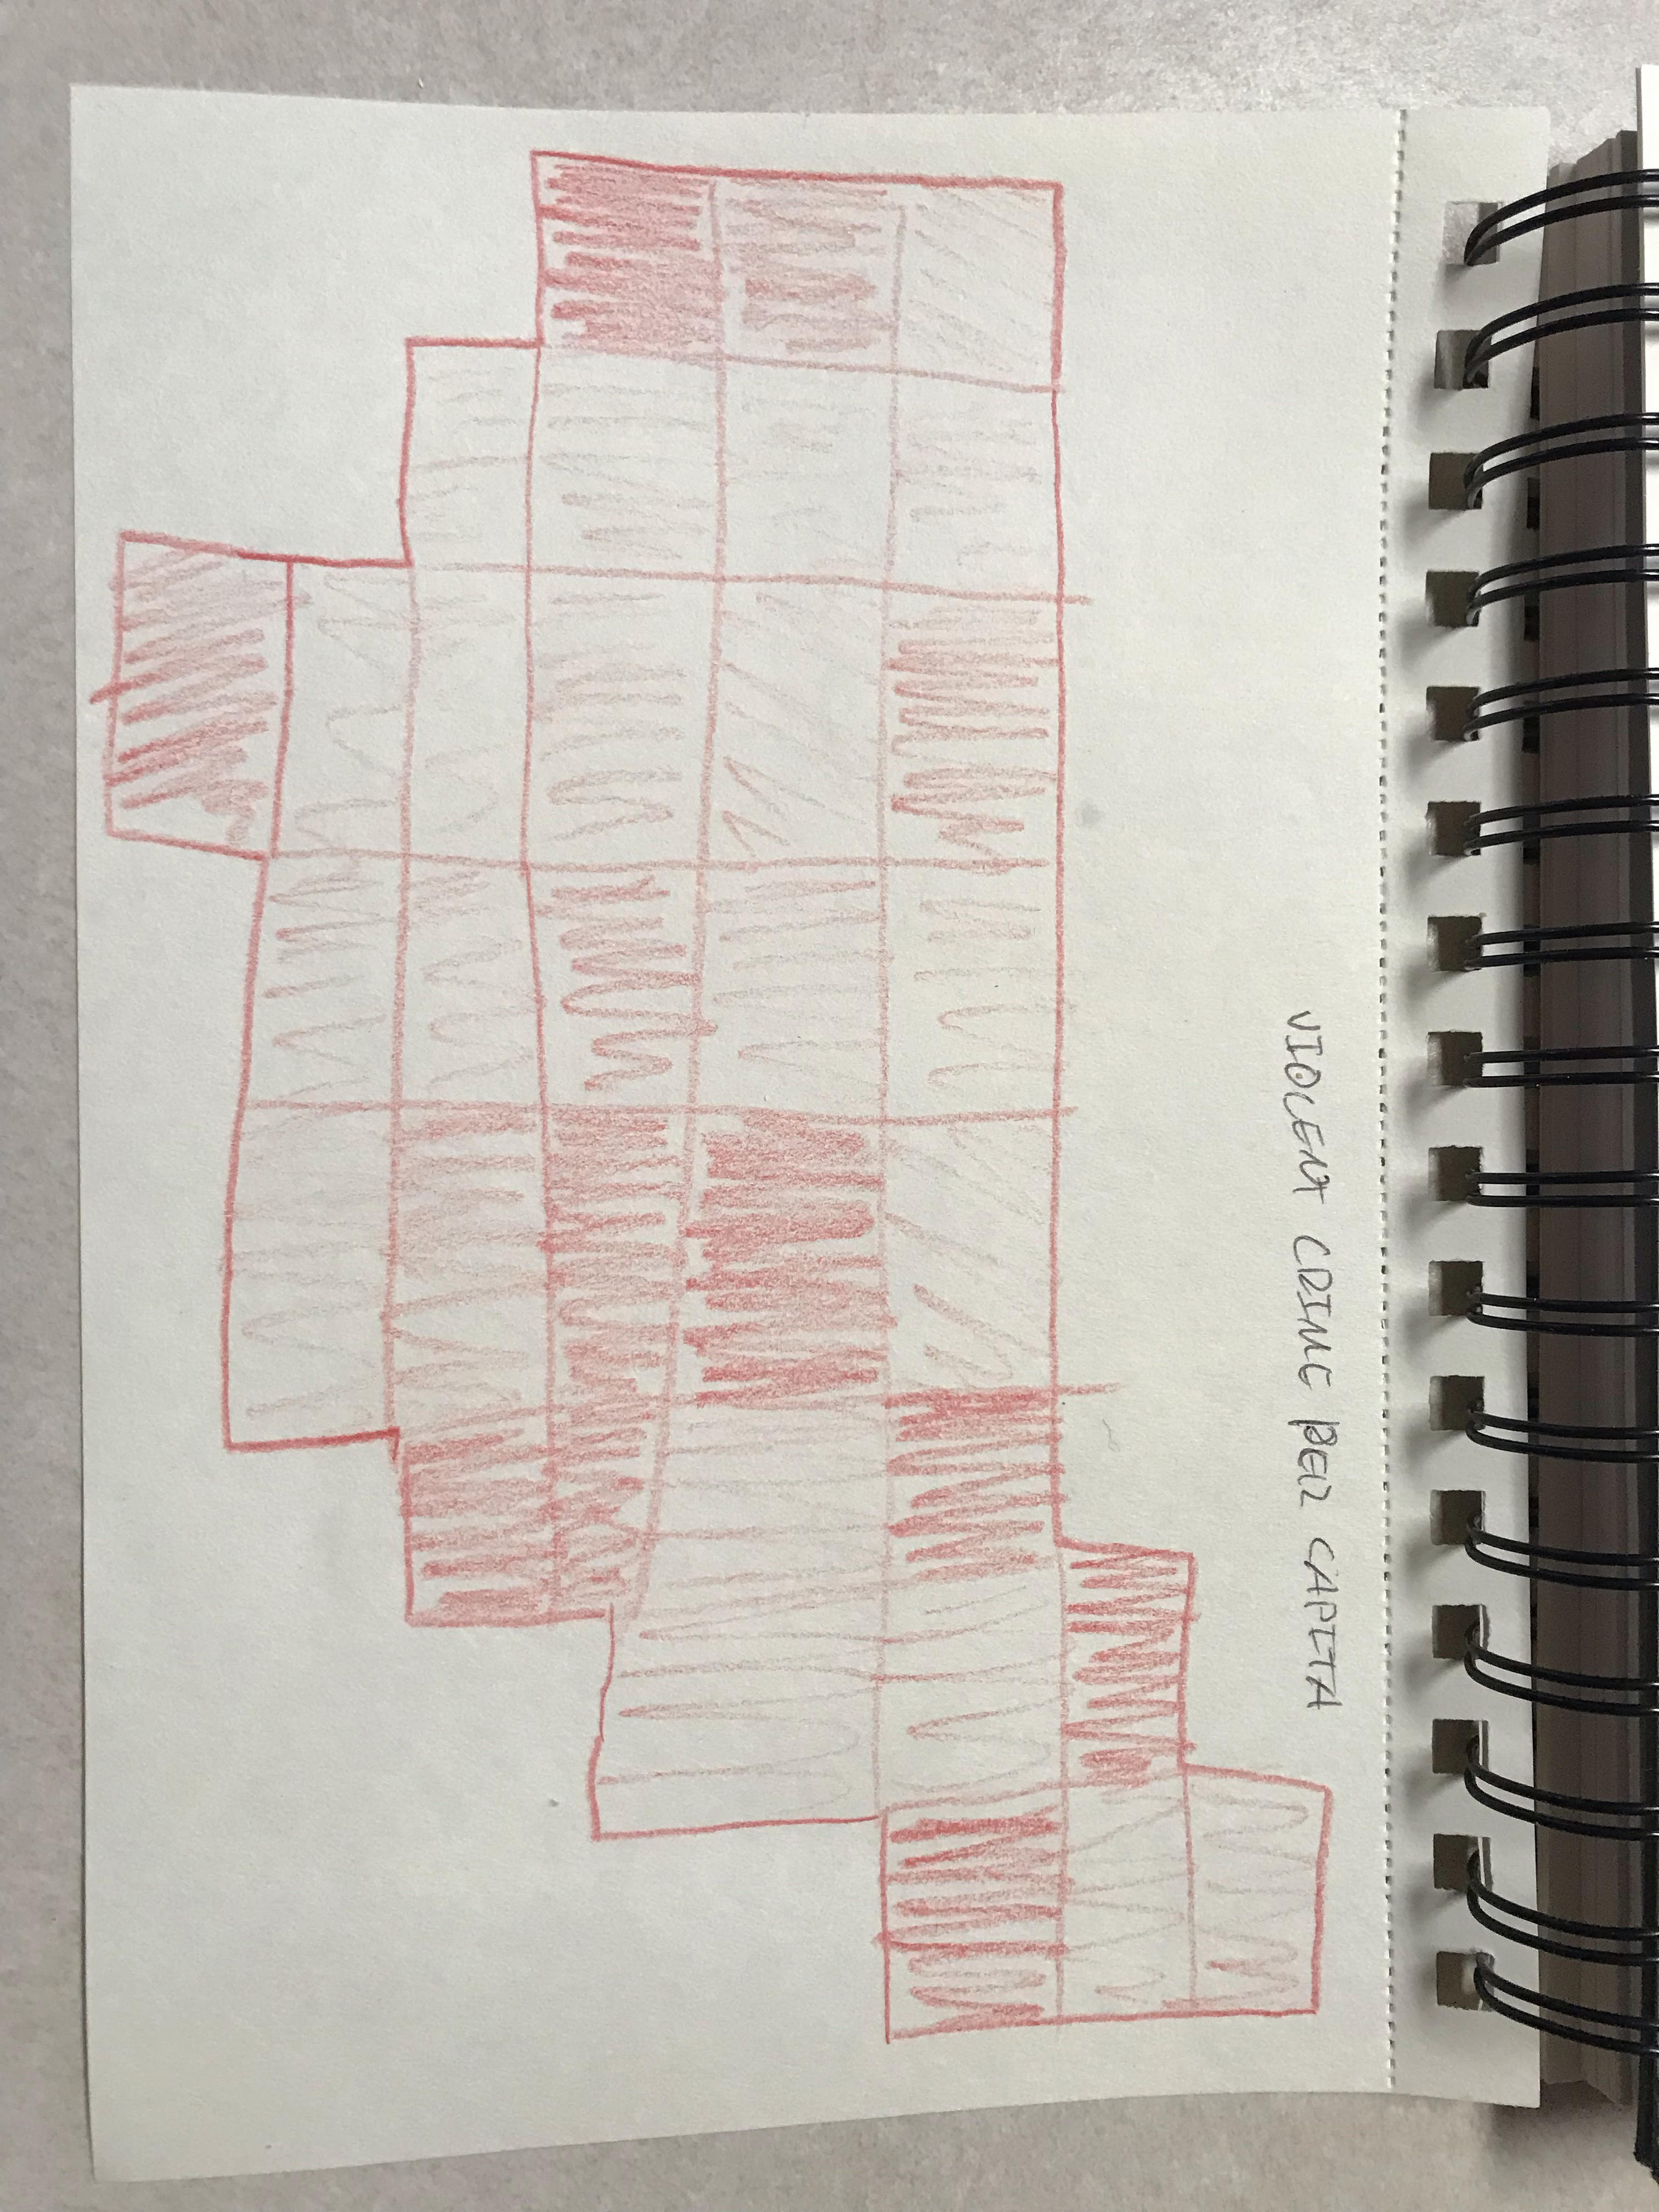 VIOLENT CRIME PER CAPITA